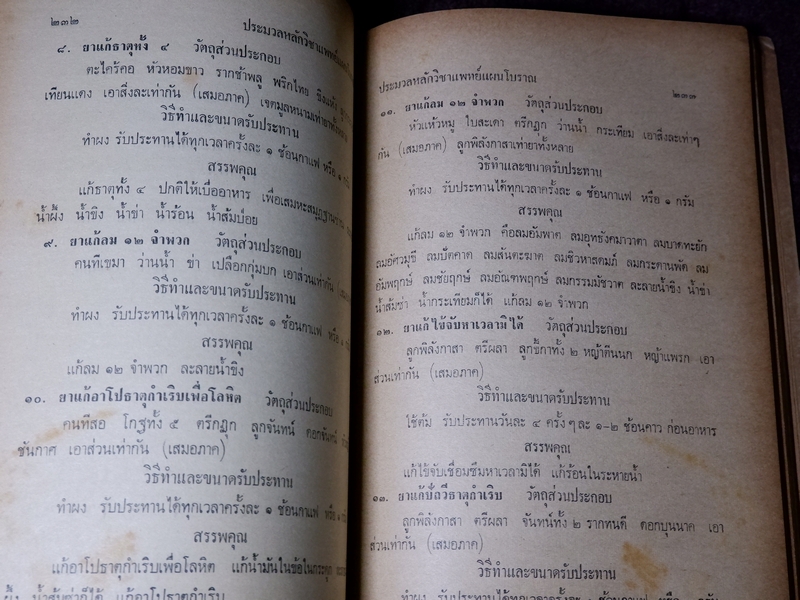 ๒๓๒
ประมวลหลักวิชาแพทย์แผนโบราณ
๘. ยาแก้ธาตุทั้ง ๔ วัตถุส่วนประกอบ
ตะไคร้คอ หัวหอมขาว รากช้าพลู พริกไทย ขิงแห้ง
เทียนแดง เอาสิ่งละเท่ากัน (เสมอภาค) เจตมูลหนามเท่ายาทั้งหลาย
วิธีทำและขนาดรับประทาน
ทำผง รับประทานได้ทุกเวลาครั้งละ ๑ ช้อนกาแฟ หรือ ๑ กรัม
สรรพคุณ
แก้ธาตุทั้ง ๔ ปกติให้เบื่ออาหาร เพื่อเสมหะสมุฏฐาน
น้ำผึ้ง น้ำขิง น้ำข่า น้ำร้อน น้ำส้มป่อย
๙. ยาแก้ลม ๑๒ จำพวก วัตถุส่วนประกอบ
คนทีเขมา ว่านน้ำ ข่า เปลือกกุ่มบก เอาส่วนเท่ากัน
วิธีทำและขนาดรับประทาน
ทำผง รับประทานได้ทุกเวลาครั้งละ ๑ ช้อนกาแฟ หรือ ๑
สรรพคุณ
แก้ลม ๑๒ จำพวก ละลายน้ำขิง
๑๐. ยาแก้อาโปธาตุกำเริบเพื่อโลหิต วัตถุส่วนประกอบ
คนทีสอ โกฐทั้ง ๕ ตรีกฏุก ลูกจันทน์ ดอกจันทน์
ชันกาศ เอาส่วนเท่ากัน (เสมอภาค)
วิธีทำและขนาดรับประทาน
ทำผง รับประทานได้ทุกเวลาครั้งละ ๑ ช้อนกาแฟ หรือ ๑
สรรพคุณ
แก้อาโปธาตุกำเริบเพื่อโลหิต แก้น้ำมันในข้อในกระดูก
น้ำส้มซ่าก็ได้ แก้อาโปธาตุกำเริบ
ประมวลหลักวิชาแพทย์แผนโบราณ
๒๓๓
๑๑. ยาแก้ลม ๑๒ จำพวก วัตถุส่วนประกอบ
หัวแห้วหมู ใบสะเดา ตรีกฏุก ว่านน้ำ กระเทียม เอาสิ่งละเท่าๆ
กัน (เสมอภาค) ลูกพิลังกาสาเท่ายาทั้งหลาย
วิธีทำและขนาดรับประทาน
ทำผง รับประทานได้ทุกเวลาครั้งละ ๑ ช้อนกาแฟ หรือ ๑ กรัม
สรรพคุณ
แก้ลม ๑๒ จำพวก คือลมอัมพาต ลมอุทธังคมาวาตา ลมบาดทะยัก
ลมอัศวมุขี ลมปัตคาด ลมสันตะฆาต ลมชิวหาสดมภ์ ลมกระดานพัด ลม
อัมพฤกษ์ ลมชัยฤกษ์ ลมอัณฑพฤกษ์ ลมกรรมมัชวาต ละลายน้ำขิง น้ำข่า
น้ำส้มซ่า น้ำกระเทียมก็ได้ แก้ลม ๑๒ จำพวก
๑๒. ยาแก้ไข้จับหาเวลามิได้ วัตถุส่วนประกอบ
ลูกพิลังกาสา ตรีผลา ลูกขี้กาทั้ง ๒ หญ้าตีนนก หญ้าแพรก เอา
ส่วนเท่ากัน (เสมอภาค)
วิธีทำและขนาดรับประทาน
ใช้ต้ม รับประทานวันละ ๔ ครั้ง ๆ ละ ๑-๒ ช้อนคาว ก่อนอาหาร
สรรพคุณ
แก้ไข้จับเชื่อมซึมหาเวลามิได้ แก้ร้อนในระหายน้ำ
๑๓. ยาแก้ปัถวีธาตุกำเริบ วัตถุส่วนประกอบ
ลูกพิลังกาสา ตรีผลา จันทน์ทั้ง ๒ รากทนดี ดอกบุนนาค เอา
ส่วนเท่ากัน (เสมอภาค)
วิธีทำและขนาดรับประทาน
ทำผง รับประทานได้ทุกเวลาครั้งละ ๑ ช้อนกาแฟ หรือ ๑ กรัม